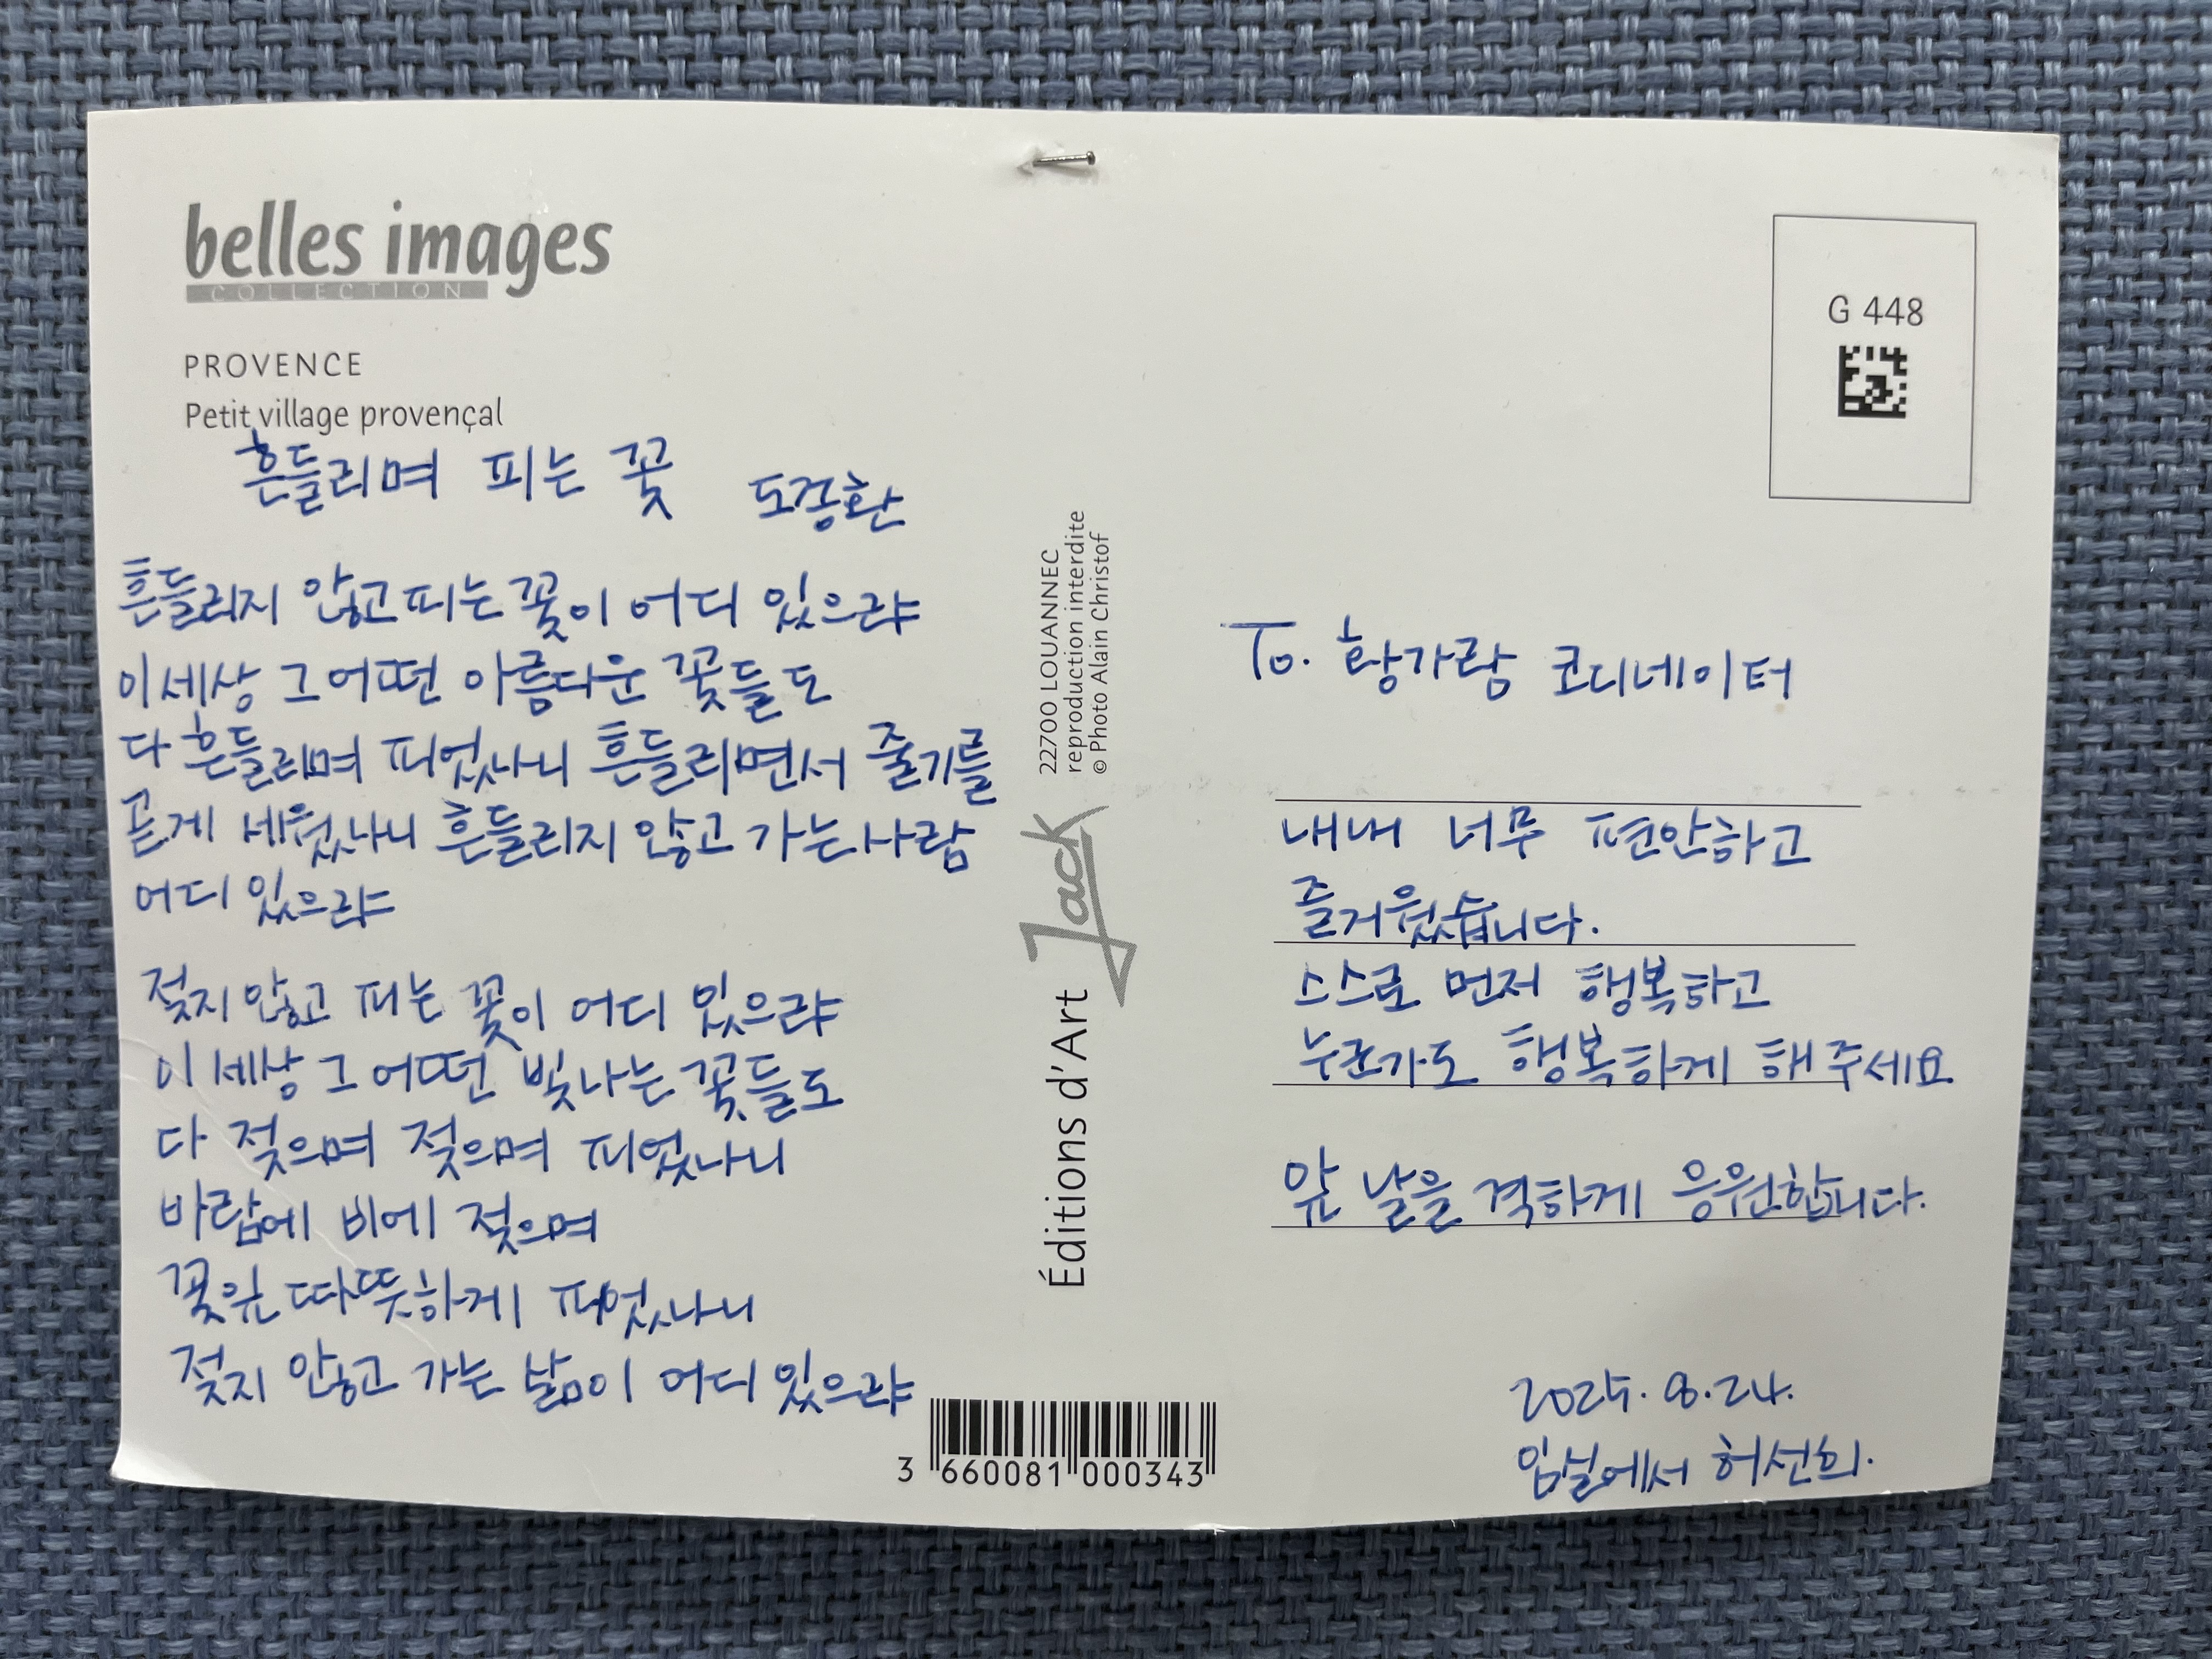 belles images
COLLECTION
PROVENCE
Petit village provençal
흔들리며 피는 꽃 도종환
흔들리지 않고 피는 꽃이 어디 있으랴
이 세상 그 어떤 아름다운 꽃들도
다 흔들리며 피었나니 흔들리면서 줄기를
곧게 세웠나니 흔들리지 않고 가는 사람
어디 있으랴
젖지 않고 피는 꽃이 어디 있으랴
이 세상 그 어떤 빛나는 꽃들도
다 젖으며 젖으며 피었나니
바람에 비에 젖으며
꽃잎 따뜻하게 피었나니
젖지 않고 가는 삶이 어디 있으랴
22700 LOUANNEC
reproduction interdite
© Photo Alain Christof
Éditions d'Art Jack
3 660081 000343
G 448
To. 황가람 코디네이터
내내 너무 편안하고
즐거웠습니다.
스스로 먼저 행복하고
누군가도 행복하게 해주세요
앞 날을 격하게 응원합니다.
2025. 8. 24.
임실에서 허선희.